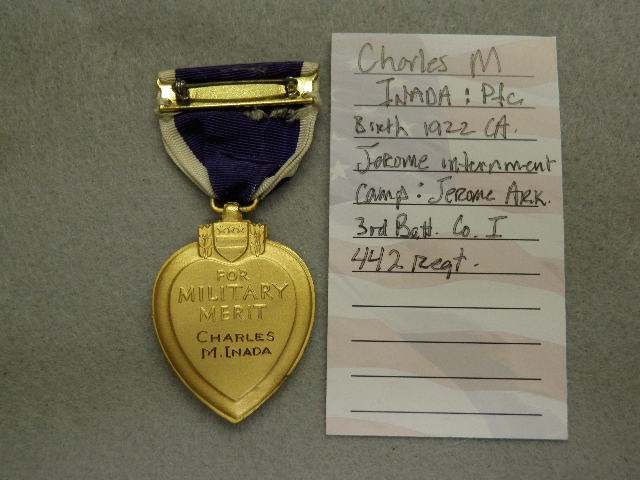 FOR
MILITARY
MERIT
CHARLES
M. INADA
Charles M
INADA : Pfc.
Birth 1922 CA.
Jerome internment
camp : Jerome ARK.
3rd Batt. Co. I
442 Regt.